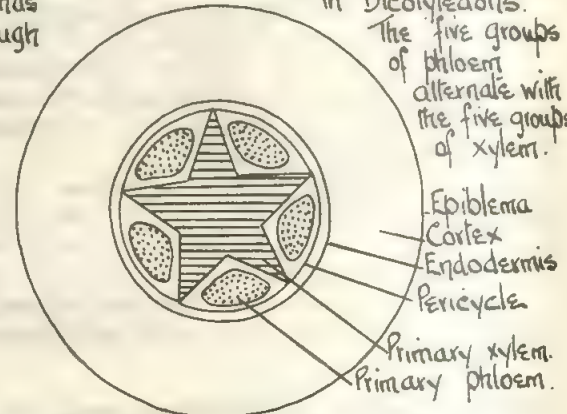 has
ugh
in Dicotyledons.
The five groups
of phloem
alternate with
the five groups
of xylem.
Epiblema
Cortex
Endodermis
Pericycle
Primary xylem.
Primary phloem.